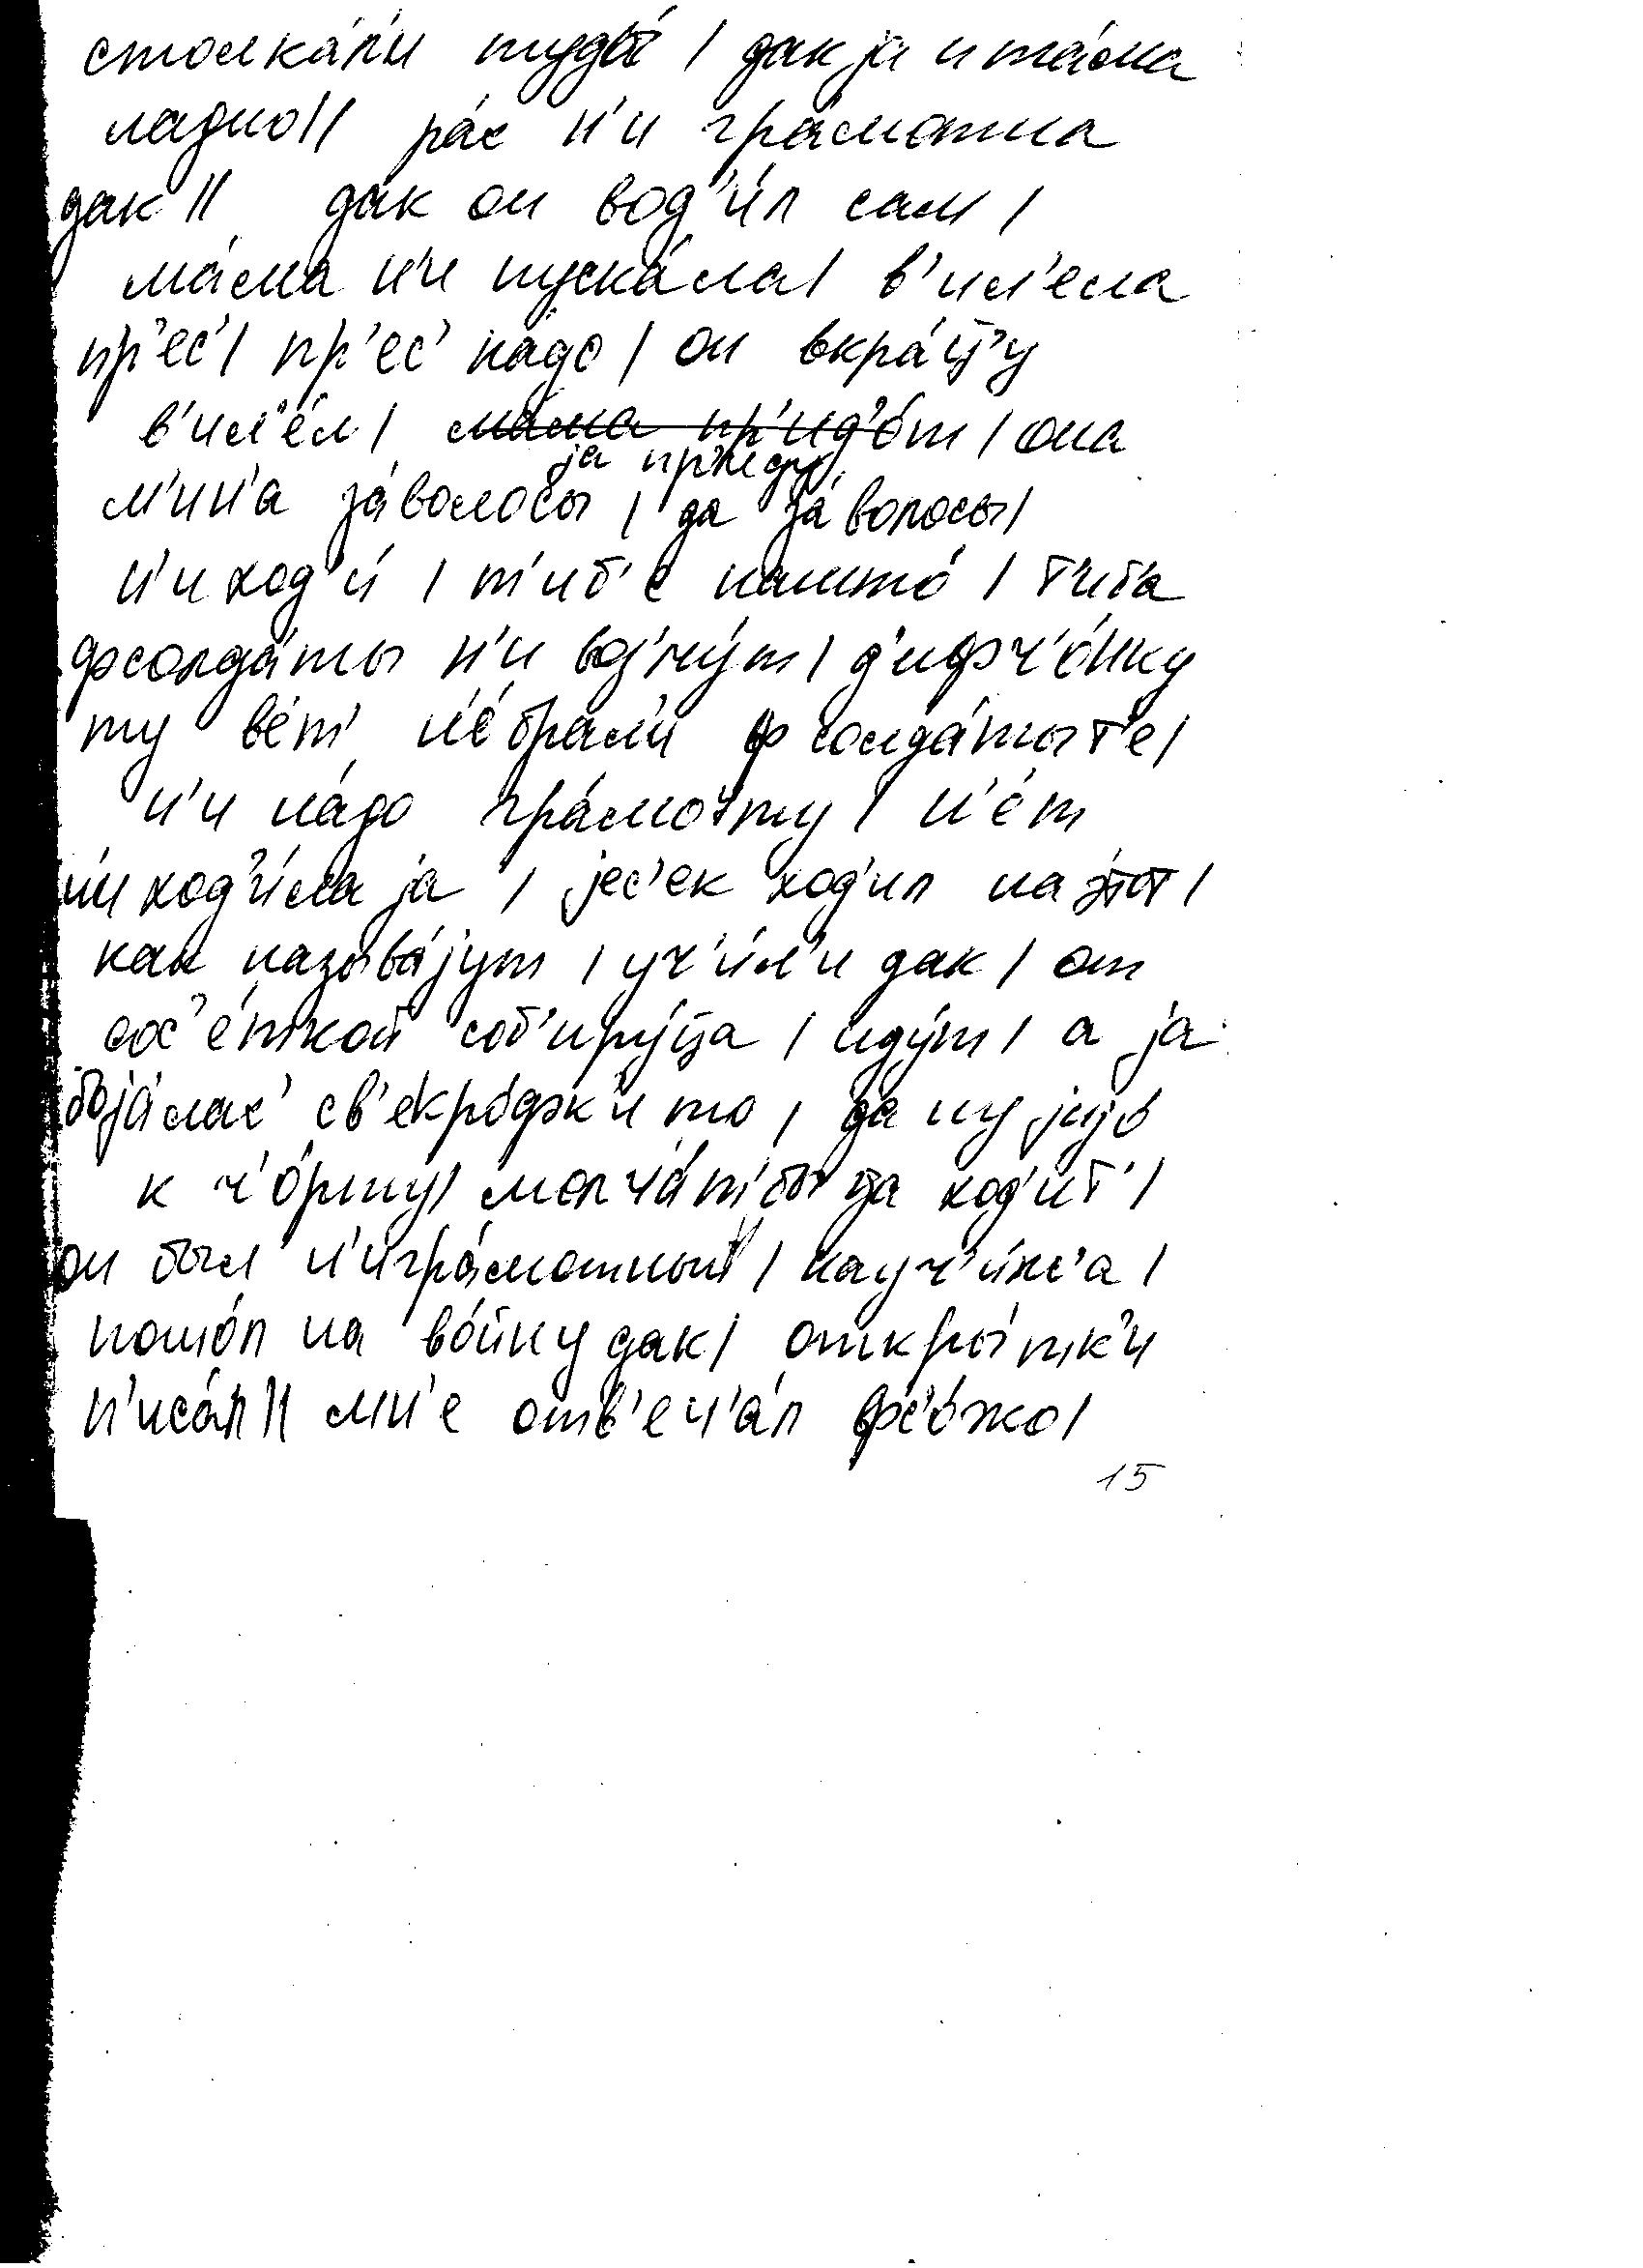 столка́л'и туды́ / дак ја и та́мка
ладно // ра́с н'и гра́мотна
дак // дак он вод'и́л сам /
ма́ма н'и пуска́ла / в'ил'ела
пр'ес'/ пр'ес' надо / он вкра́ц'у
в'ил'е́л / ~~ма́ма пр'ид'о́т~~ / она
ја пр'иеду
м'ин'а за́волосы / да за́ волосы /
н'и ход'и́ / т'иб'е нашто́ / т'иб'а
фсолда́ты н'и воз'му́т / д'ифч'о́нку
ту ве́т' н'е́ брал'и ф солда́ты т'е /
н'и на́до гра́моту / н'е́т
н'и ход'и́ла ја / јес'ек ход'ил на э́тот /
как называ́јут / уч'и́л'и дак / от
сос'е́ткой соб'иру́ца / иду́т / а ја
боја́лас' св'екро́фк'и то / да ну јијо́
к ч'о́рту / молч'а́т' бы да ход'ит' /
он был н'игра́мотный / науч'и́лс'а /
пошо́л на во́йну дак / откры́тк'и
п'иса́л // мн'е отв'еч'а́л фс'о́жо /
15